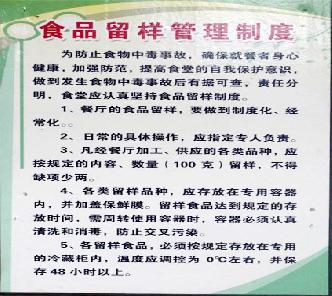 食品留样管理制度
为防止食物中毒事故，确保就餐者身心
健康，加强防范，提高食堂的自我保护意识，
做到发生食物中毒事故后有据可查，责任分
明，食堂应认真坚持食品留样制度。
1、餐厅的食品留样，要做到制度化、经
常化。。
2、日常的具体操作，应指定专人负责。
3、凡经餐厅加工、供应的各类品种，应
按规定的内容、数量（100克）留样，不得
缺项少两。
4、各类留样品种，应存放在专用容器
内，并加盖保鲜膜。留样食品达到规定的存
放时间，需周转使用容器时，容器必须认真
清洗和消毒，防止交叉污染。
5、各留样食品，必须按规定存放在专用
的冷藏柜内，温度应调控为0℃左右，并保
存48小时以上。